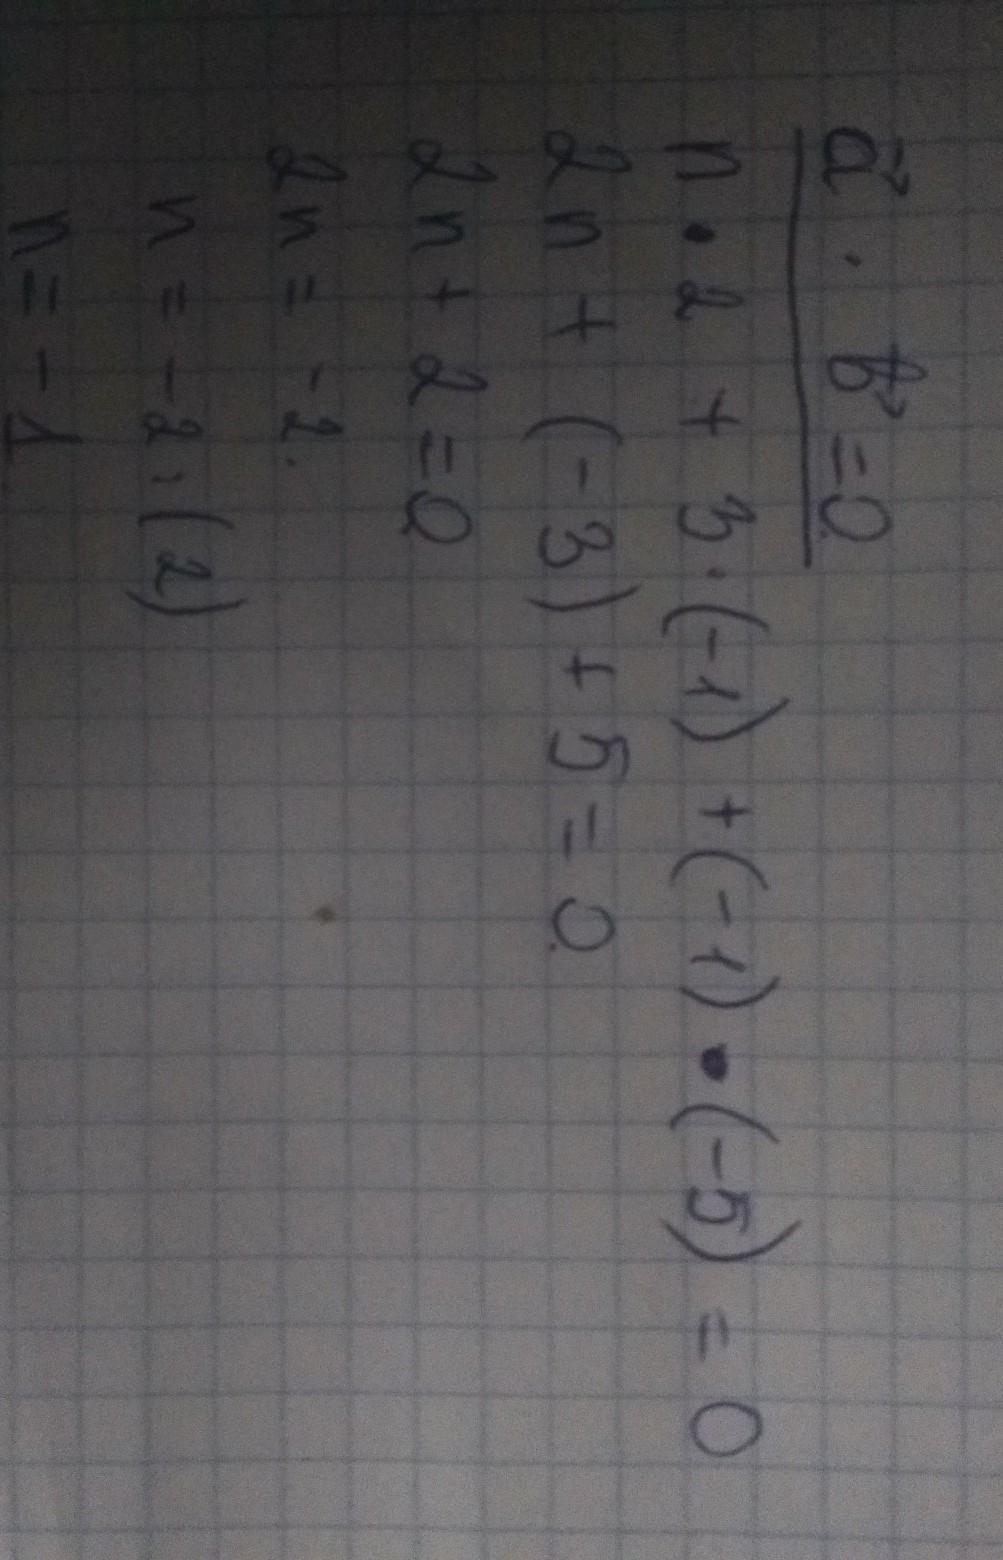 a⃗ · b⃗ = 0
n · 2 + 3 · (-1) + (-1) · (-5) = 0
2n + (-3) + 5 = 0
2n + 2 = 0
2n = -2.
n = -2 : (2)
n = -1